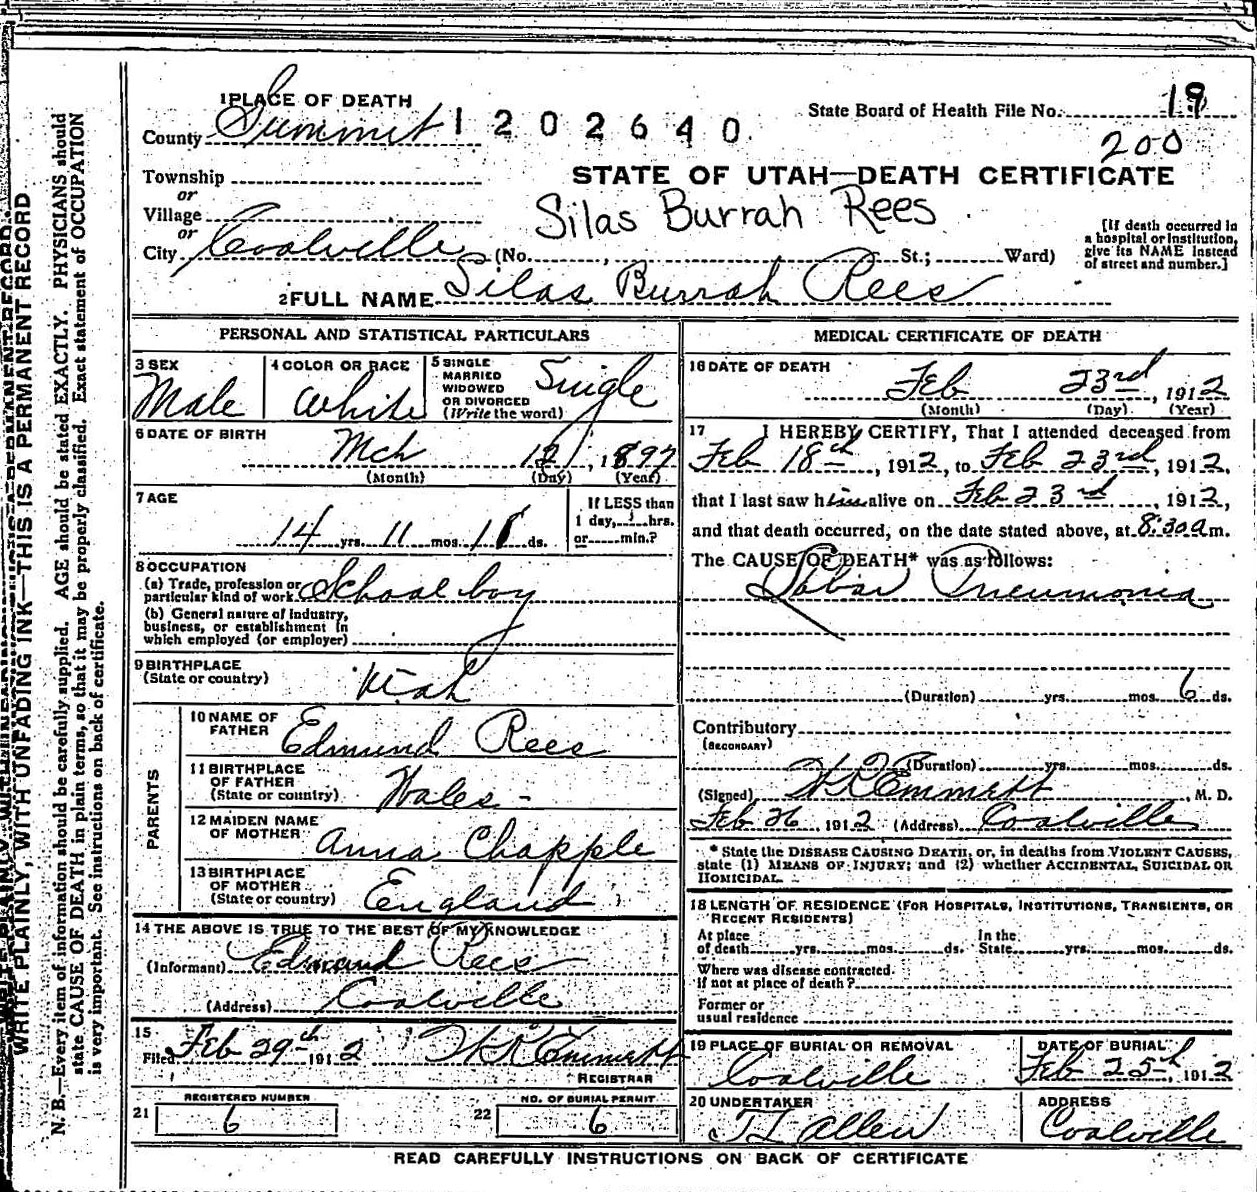 1 PLACE OF DEATH
County Summit
1 2 0 2 6 4 0
State Board of Health File No. 19
200
Township
or
Village
or
City Coalville (No. , St.; Ward)
STATE OF UTAH—DEATH CERTIFICATE
Silas Burrah Rees
[If death occurred in
a hospital or institution,
give its NAME instead
of street and number.]
2 FULL NAME Silas Burrah Rees
PERSONAL AND STATISTICAL PARTICULARS
3 SEX
Male
4 COLOR OR RACE
White
5 SINGLE
MARRIED
WIDOWED
OR DIVORCED
(Write the word)
Single
6 DATE OF BIRTH
Mch 12, 1897
(Month) (Day) (Year)
7 AGE
14 yrs. 11 mos. 11 ds.
If LESS than
1 day, hrs.
or min.?
8 OCCUPATION
(a) Trade, profession or
particular kind of work School boy
(b) General nature of industry,
business, or establishment in
which employed (or employer)
9 BIRTHPLACE
(State or country)
Utah
PARENTS
10 NAME OF
FATHER
Edmund Rees
11 BIRTHPLACE
OF FATHER
(State or country)
Wales -
12 MAIDEN NAME
OF MOTHER
Anna Chapple
13 BIRTHPLACE
OF MOTHER
(State or country)
England
14 THE ABOVE IS TRUE TO THE BEST OF MY KNOWLEDGE
(Informant) Edmund Rees
(Address) Coalville
15
Filed Feb 29th 1912 W R Emmett
REGISTRAR
21
REGISTERED NUMBER
6
22
NO. OF BURIAL PERMIT
6
MEDICAL CERTIFICATE OF DEATH
16 DATE OF DEATH
Feb 23rd, 1912
(Month) (Day) (Year)
17 I HEREBY CERTIFY, That I attended deceased from
Feb 18th, 1912, to Feb 23rd, 1912,
that I last saw him alive on Feb 23rd, 1912,
and that death occurred, on the date stated above, at 8:30 a m.
The CAUSE OF DEATH* was as follows:
Lobar Pneumonia
(Duration) yrs. mos. 6 ds.
Contributory
(SECONDARY)
(Duration) yrs. mos. ds.
(Signed) W R Emmett, M. D.
Feb 26, 1912 (Address) Coalville
* State the DISEASE CAUSING DEATH, or, in deaths from VIOLENT CAUSES,
state (1) MEANS OF INJURY; and (2) whether ACCIDENTAL, SUICIDAL OR
HOMICIDAL.
18 LENGTH OF RESIDENCE (FOR HOSPITALS, INSTITUTIONS, TRANSIENTS, OR
RECENT RESIDENTS)
At place
of death yrs. mos. ds.
In the
State yrs. mos. ds.
Where was disease contracted
if not at place of death?
Former or
usual residence
19 PLACE OF BURIAL OR REMOVAL
Coalville
DATE OF BURIAL
Feb 25th, 1912
20 UNDERTAKER
T L Allen
ADDRESS
Coalville
READ CAREFULLY INSTRUCTIONS ON BACK OF CERTIFICATE
WRITE PLAINLY, WITH UNFADING INK—THIS IS A PERMANENT RECORD
N. B.—Every item of information should be carefully supplied. AGE should be stated EXACTLY. PHYSICIANS should
state CAUSE OF DEATH in plain terms, so that it may be properly classified. Exact statement of OCCUPATION
is very important. See instructions on back of certificate.